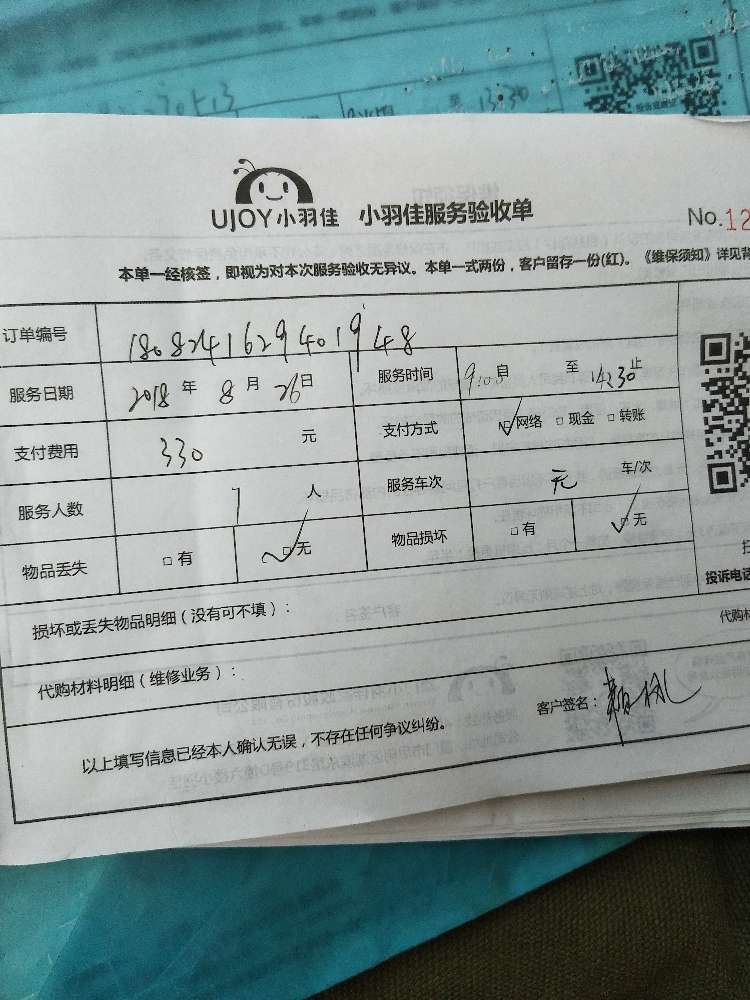 13:30
UJOY小羽佳 小羽佳服务验收单
No.12
本单一经核签，即视为对本次服务验收无异议。本单一式两份，客户留存一份(红)。《维保须知》详见背
订单编号 1808241629401948
服务日期 2018 年 8 月 26 日 服务时间 9:00 自 至 14:30 止
支付费用 330 元 支付方式 ☑网络 □现金 □转账
服务人数 1 人 服务车次 元 车/次
物品丢失 □有 ☑无 物品损坏 □有 ☑无
投诉电话
损坏或丢失物品明细（没有可不填）：
代购材
代购材料明细（维修业务）：
客户签名：
以上填写信息已经本人确认无误，不存在任何争议纠纷。